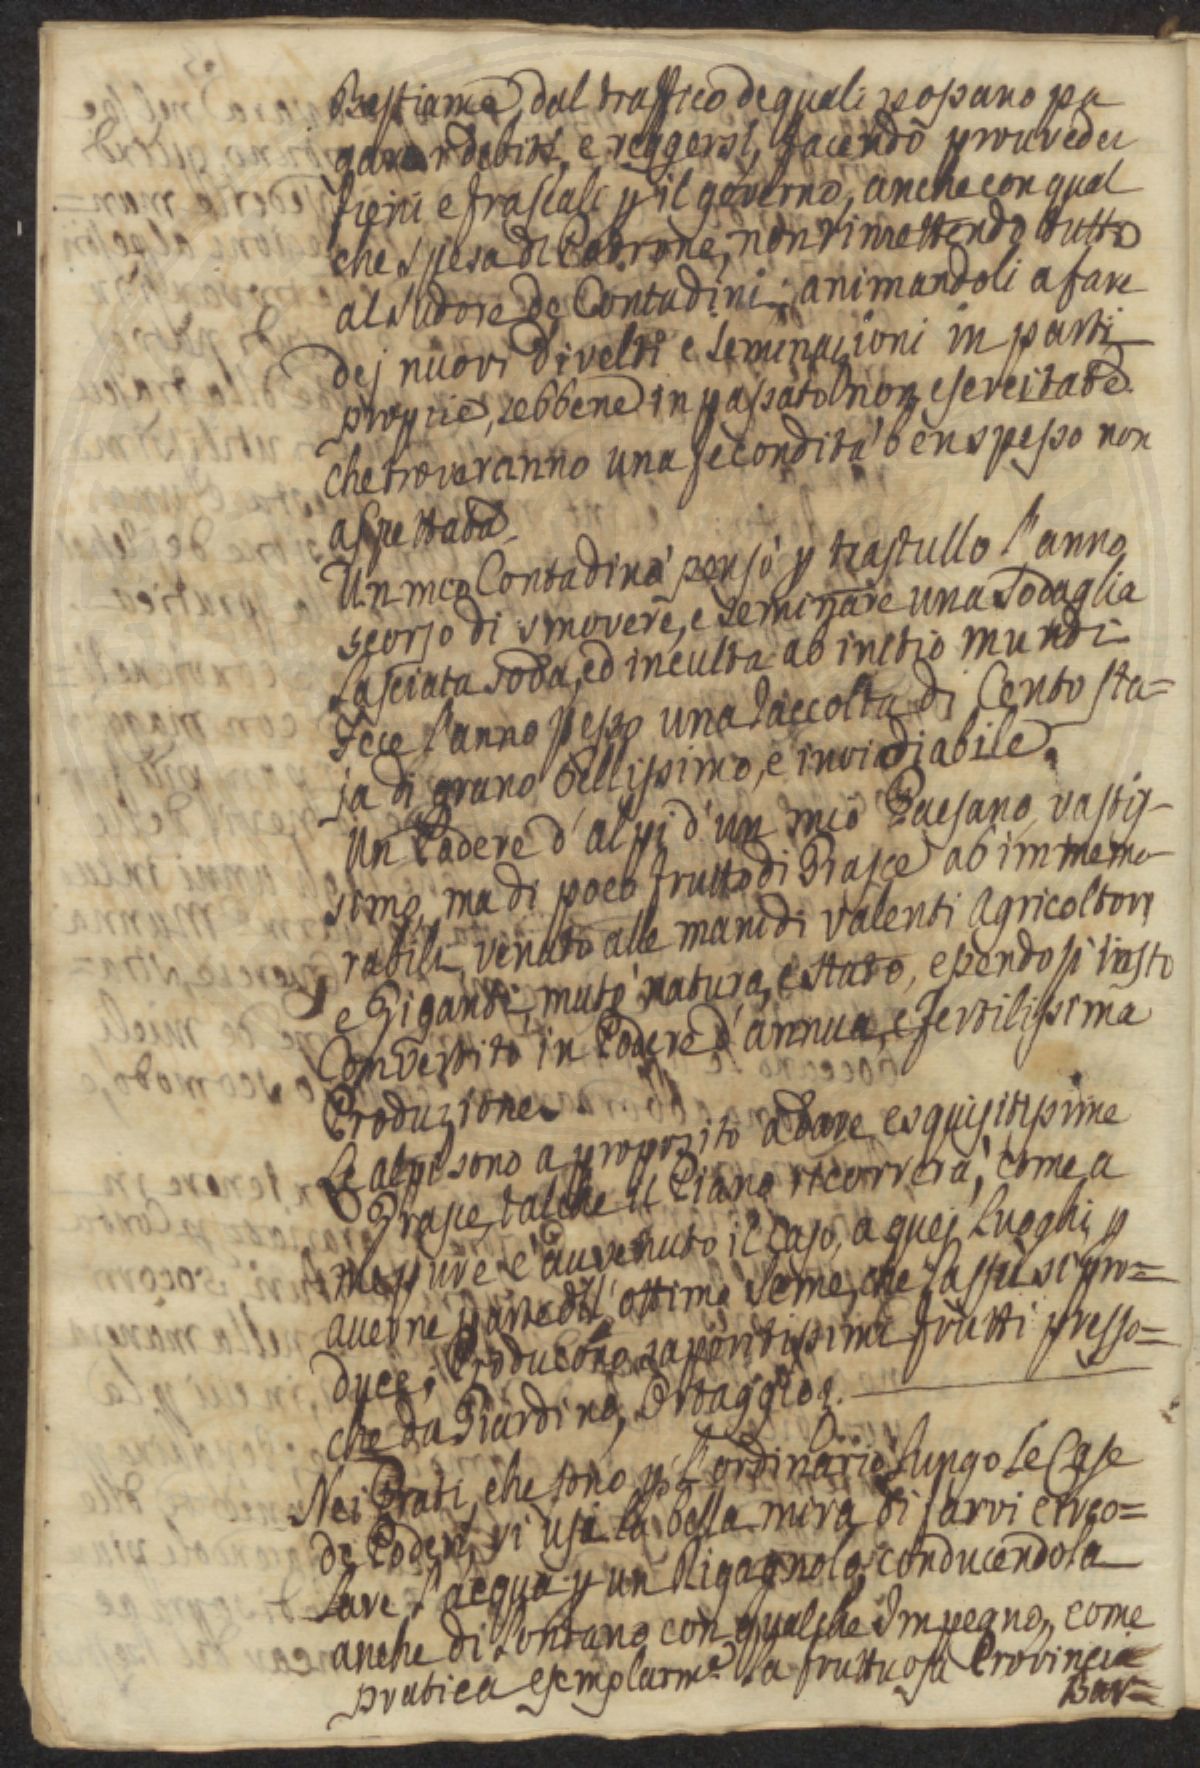 Bestiame, dal traffico de quali possano pa
gare i debiti, e reggersi, facendo proveder
fieni e frascali p il governo, anche con qual
che spesa di Padrone, non rimettendo tutto
al sudore de Contadini; animandoli a fare
dej nuovi divelti e seminazioni in parti
proprie, sebbene in passato non esercitate
che troveranno una fecondità ben spesso non
aspettata.
Un mio Contadino pensò p trastullo l'anno
scorso di smovere, e seminare una sodaglia
lasciata soda, ed inculta ab initio mundi
Fece l'anno stesso una raccolta di Cento sta=
ja di grano bellissimo, e invidiabile.
Un Podere d'alpi d'un mio Paesano, vastis-
simo, ma di poco frutto di Grasce ab immemo-
rabili, venuto alle mani di valenti Agricoltori
e Giganti, mutò natura, e stato, essendosi vasto
Convertito in Podere d'annua, e fertilissima
Produzione.
Le alpi sono a proposito a dare esquisitissime
Grasce, talche il Piano ricorrerà, come a
me pure è avvenuto il caso, a quej Luoghi, p
averne parte dell'ottimo seme, che lassù si pro=
duce, Producono saporitissimi frutti presso=
che da Giardino, Ortaggio.
Nei Prati, che sono p l'ordinario lungo le Case
de Poderi, vi usi la bella mira di farvi circo=
lare l'acqua p un Rigagnolo, conducendola
anche di lontano con qualche Impegno, come
pratica esemplarm.e la fruttuosa Provincia
Bar=